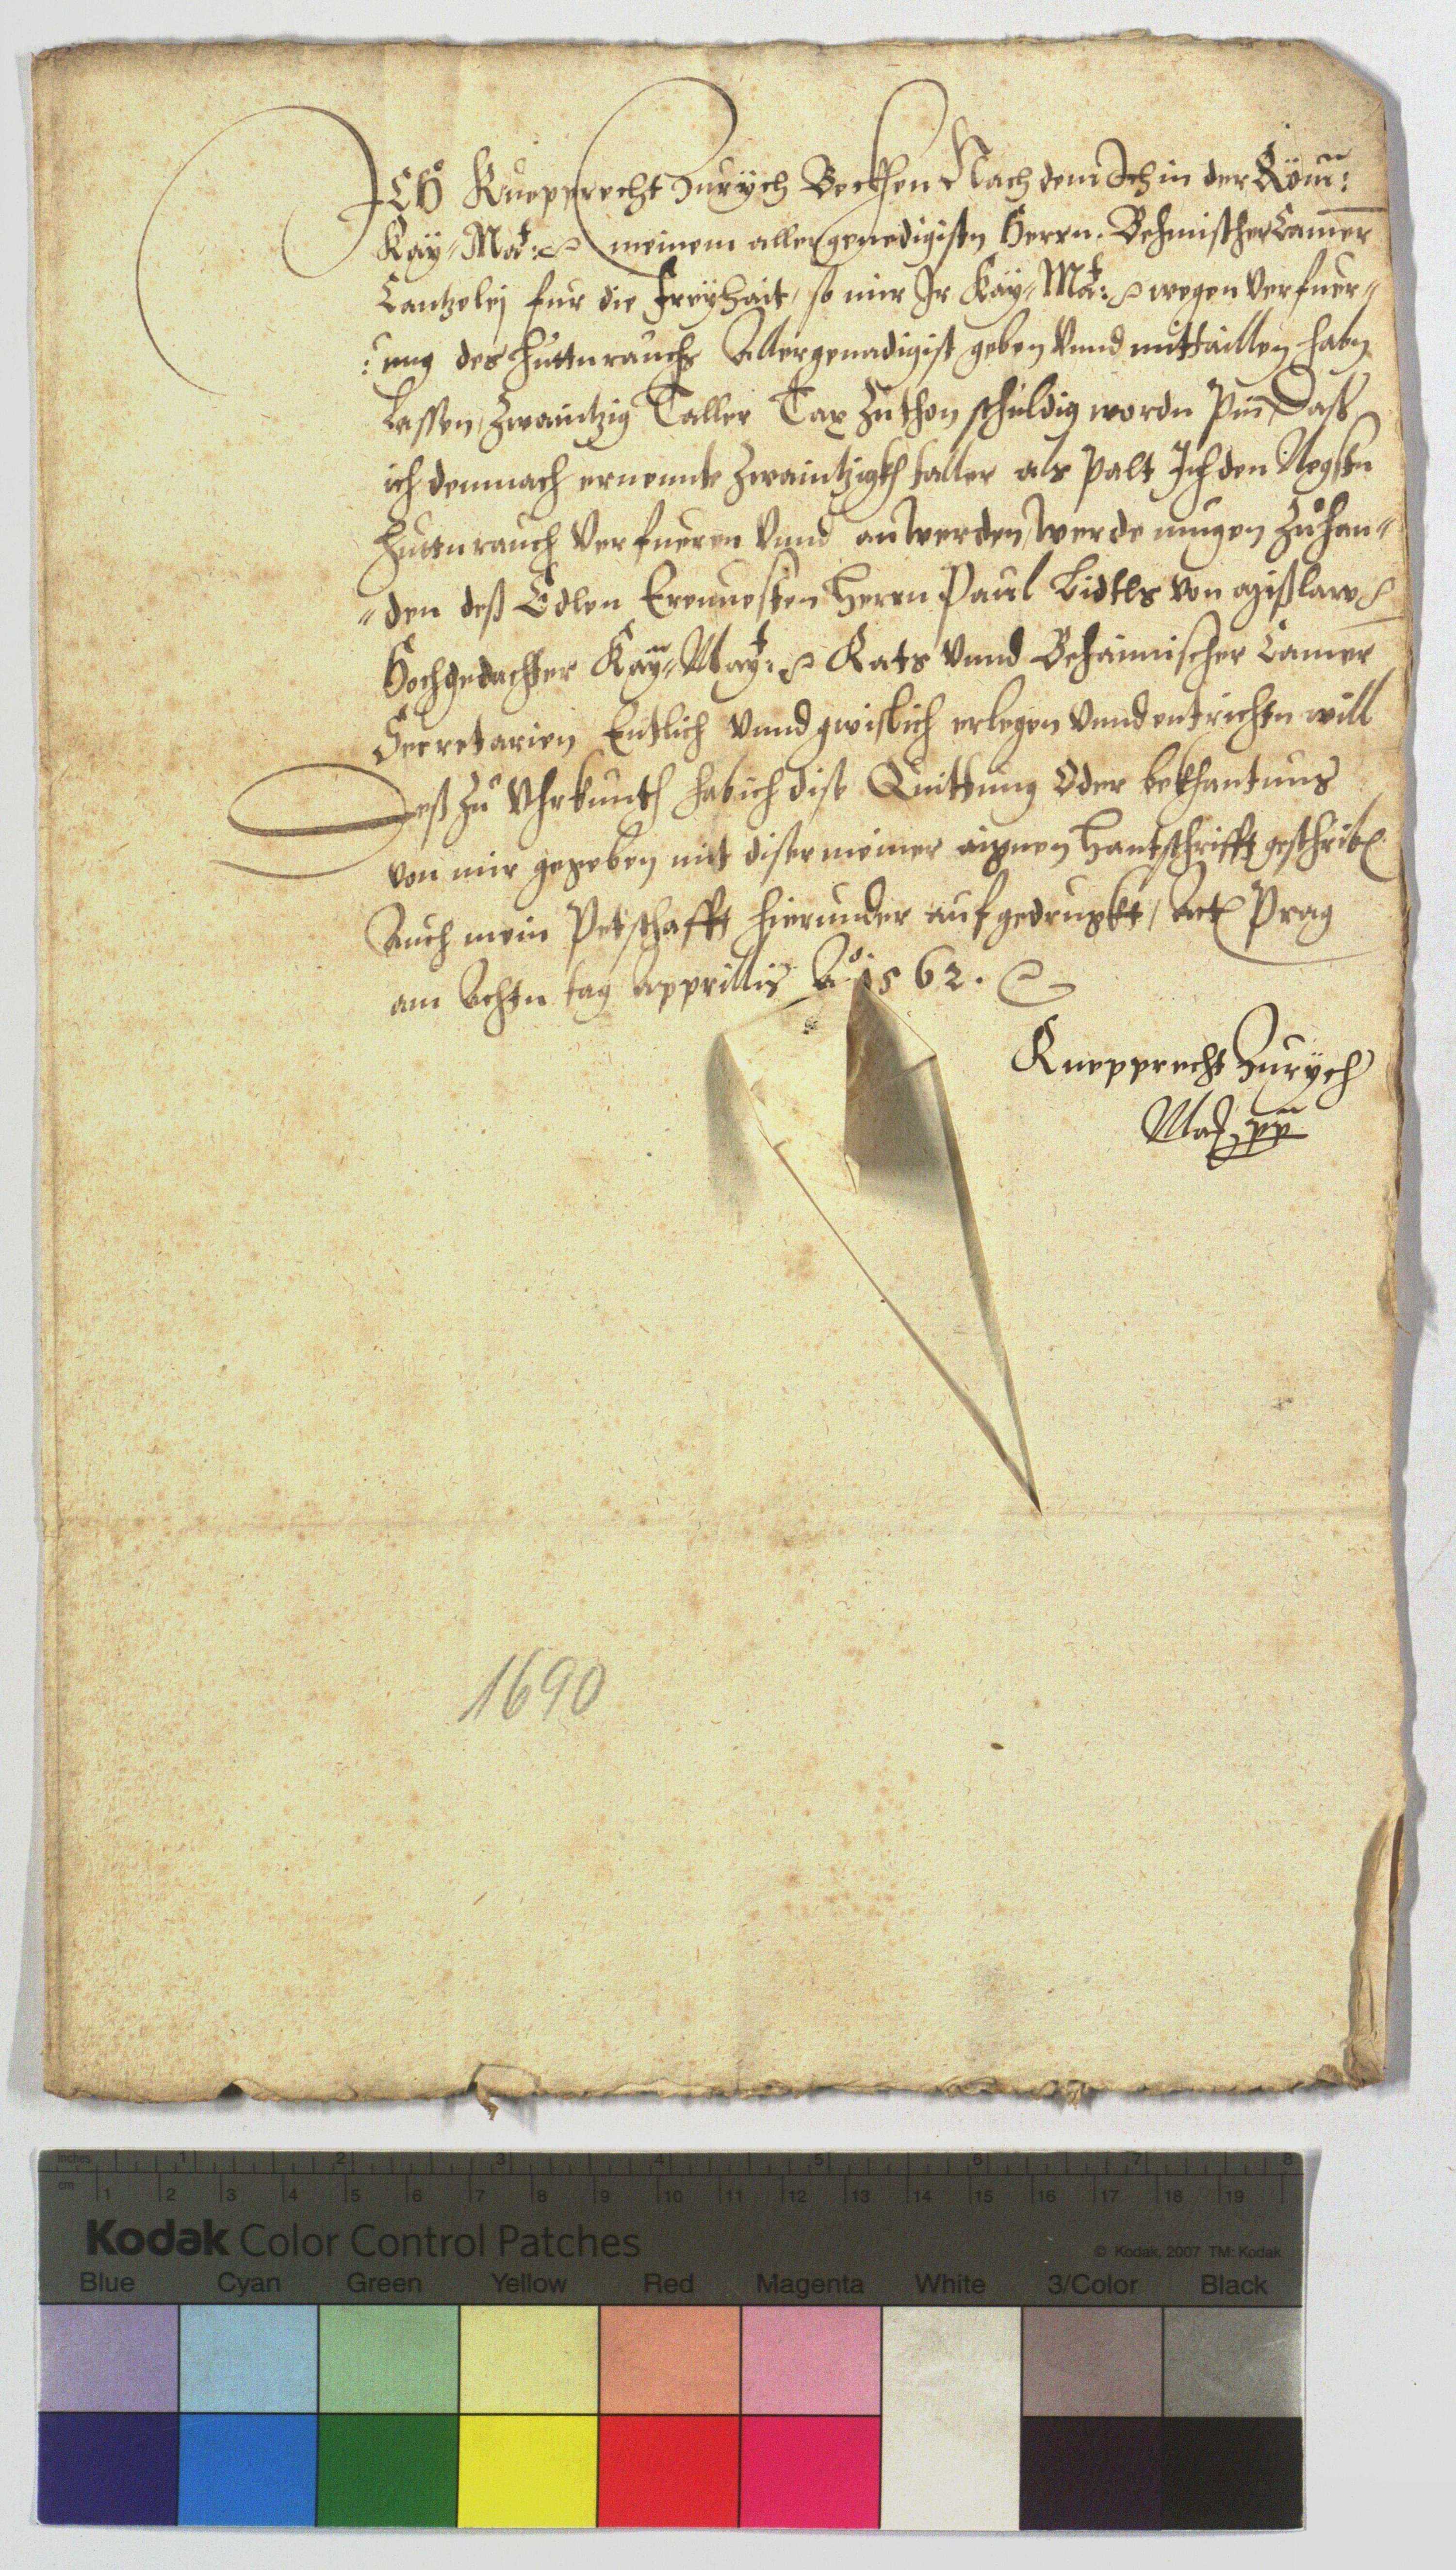 ICH Rueprecht Zurÿch Bekhen Nach dem Ich in der Röm:
Kaÿ: Mat: meinem allergenedigisten Herrn. Behmischer Camer
Cantzelej fur die freÿhait, so mir Ir Kaÿ: Mat: wegen verfuer-
ung des huttnrauchs Allergenadigist geben Vnnd mittaillen habn
lassen, Zwaintzig Taller Tax Zuthon schuldig wordn pin, Dass
ich demnach ernennte Zwaintzigkh taller als palt Ich den Negsten
huttnrauch Verfueren Vnnd anwerden, werde mugen Zuhan-
den deß Edlen Ernuesten Herrn Paul Lidtls von
Hochgedachter Kaÿ: Maÿt: Rats Vnnd Behaimischer Camer
Secretarien Entlich Vnnd gwislich erlegen Vnnd entrichtn will
Deß Zu Vhrkunth hab ich dise Quittung Oder bekhantnus
von mir gegeben mit diser meiner aignen Hantschrifft geschribn
Auch mein Petschafft hierunder aufgedruckt, Act Prag
am Achtn tag apprillis Ao 1562.
Ruepprecht Zurÿch
1690
inches 1 2 3 4 5 6 7 8
cm 1 2 3 4 5 6 7 8 9 10 11 12 13 14 15 16 17 18 19
Kodak Color Control Patches © Kodak, 2007 TM: Kodak
Blue Cyan Green Yellow Red Magenta White 3/Color Black